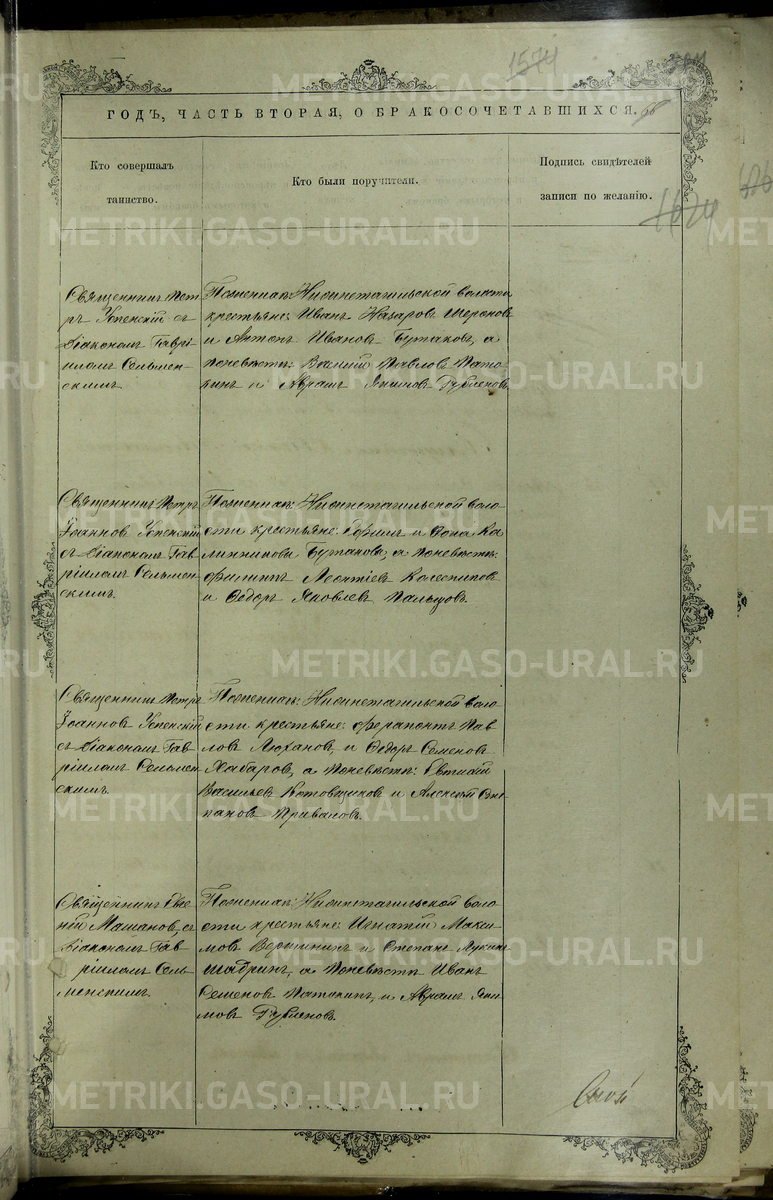 1574
ГОДЪ, ЧАСТЬ ВТОРАЯ, О БРАКОСОЧЕТАВШИХСЯ.
66
Кто совершалъ
таинство.
Кто были поручители.
Подпись свидѣтелей
записи по желанію.
1624
Священникъ Пет
ръ Успенскій съ
Діакономъ Гаврі
иломъ Сельмен-
скимъ.
По женихѣ: Нижнетагильской волости
крестьяне: Иванъ Назаровъ
и Антонъ Ивановъ Бутаковъ, а
по невѣстѣ: Василій Павловъ Пато
кинъ и Аврамъ Якимовъ Губановъ
Священникъ Петръ
Іоанновъ Успенскій
съ Діакономъ Гав-
ріиломъ Сельмен-
скимъ.
По женихѣ: Нижнетагильской воло
сти крестьяне: и Ка
линниковы Бутаковы, а по невѣстѣ:
Филиппъ Леонтіевъ Колесниковъ
и Ѳедоръ Яковлевъ Пальцовъ.
Священникъ Петръ
Іоанновъ Успенскій
съ Діакономъ Гав-
ріиломъ Сельмен-
скимъ.
По женихѣ: Нижнетагильской воло
сти крестьяне: Ферапонтъ Пав
ловъ Люхановъ, и Ѳедоръ Семеновъ
Хабаровъ, а по невѣстѣ: Евтихій
Васильевъ Котовщиковъ и Алексѣй Сте
пановъ Приваловъ.
Священникъ Евге
ній Машановъ, съ
Діакономъ Гав
ріиломъ Сель-
менскимъ.
По женихѣ: Нижнетагильской воло
сти крестьяне: Игнатій Макси
мовъ Вершининъ и Степанъ Лукинъ
Шабринъ, а по невѣстѣ Иванъ
Семеновъ Патокинъ, и Аврамъ Яки
мовъ Губановъ.
METRIKI.GASO-URAL.RU